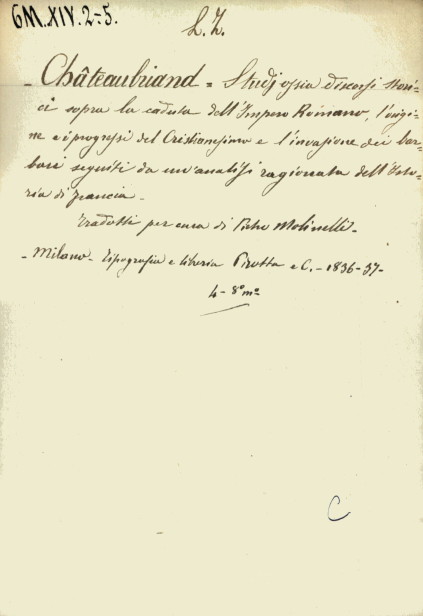 GM.XIV.2-5.
L.Z.
- Châteaubriand = Studj ossia discorsi stori-
ci sopra la caduta dell'Impero Romano, l'origi-
ne e i progressi del Cristianesimo e l'invasione dei bar-
bari seguiti da un'analisi ragionata dell'Isto-
ria di Francia -
Tradotti per cura di Pietro Molinelli -
- Milano - Tipografia e libreria Pirotta e C. - 1836-37-
4 - 8° m°
C